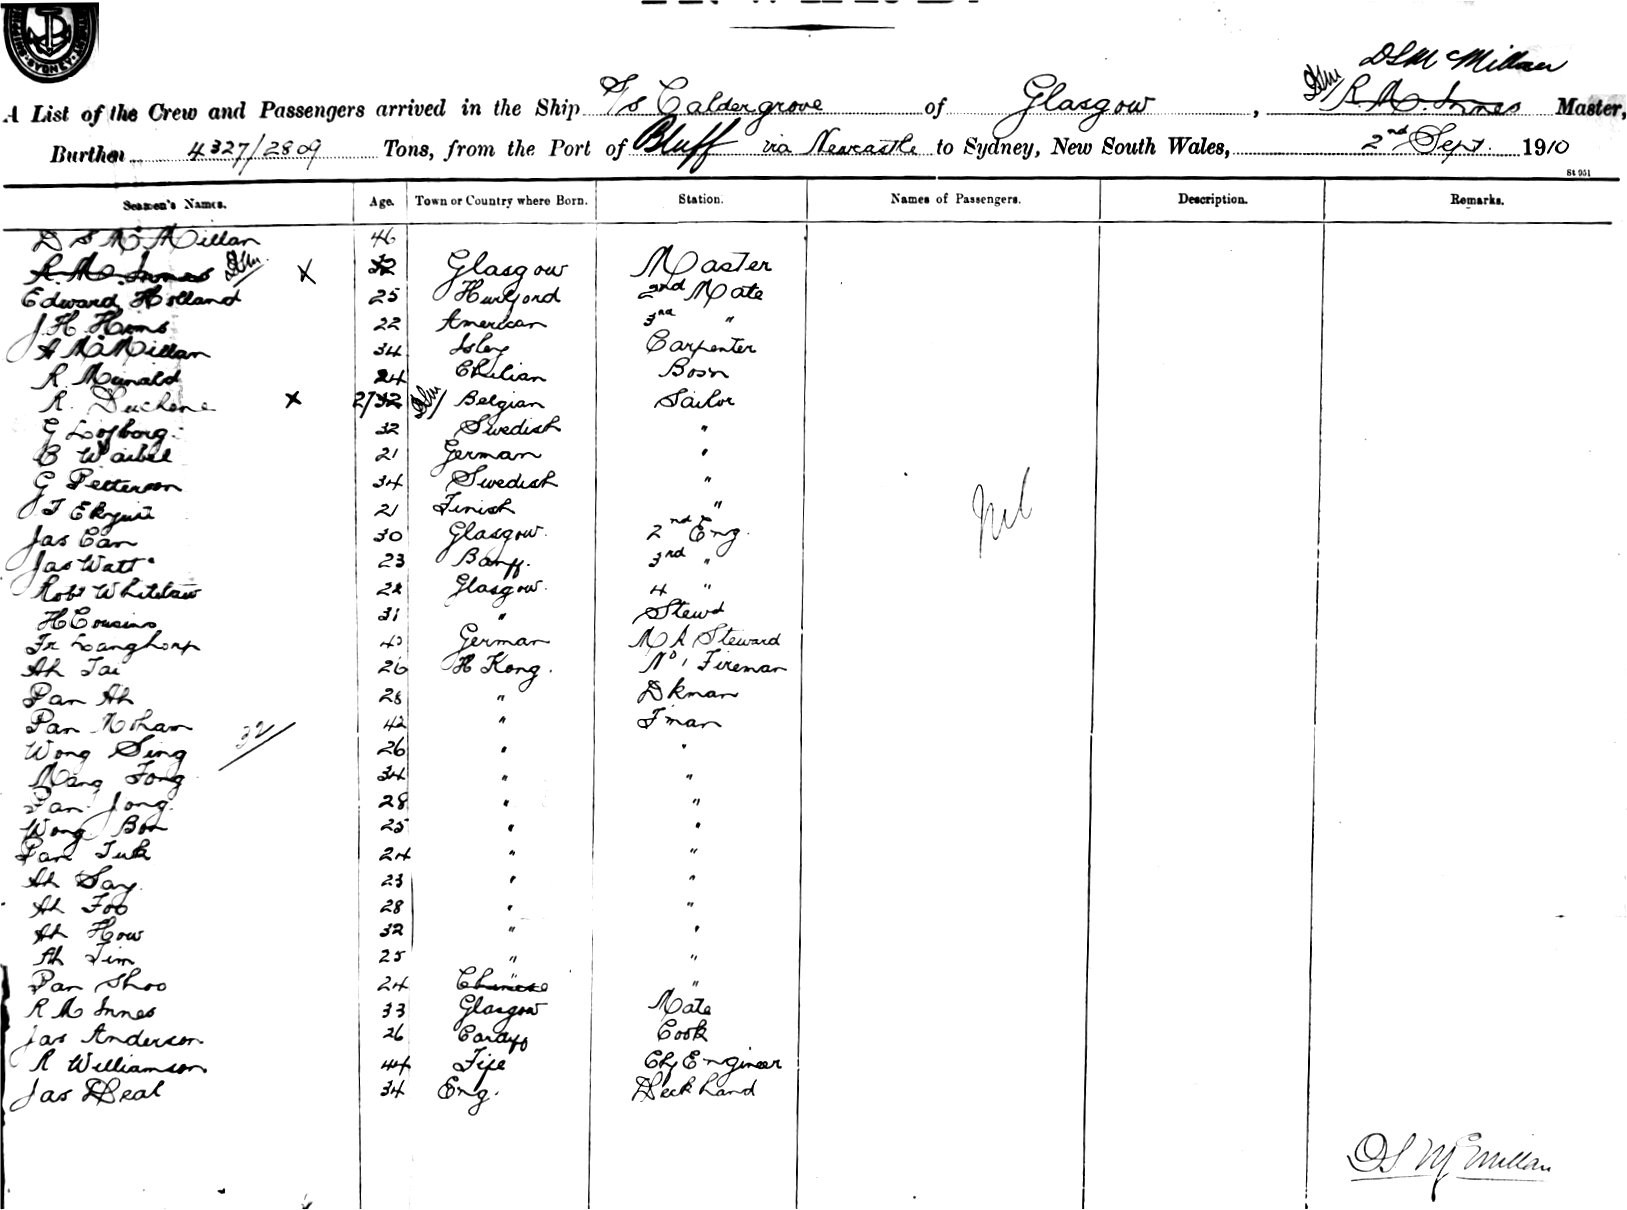 A List of the Crew and Passengers arrived in the Ship S/s Caldergrove of Glasgow, DSM R Mc Innes DS McMillan Master,
Burthen 4327/2809 Tons, from the Port of Bluff via Newcastle to Sydney, New South Wales, 2nd Sept. 1910
St 951
Seamen's Names. Age. Town or Country where Born. Station. Names of Passengers. Description. Remarks.
D S McMillan 46
R. Mc Innes DSM X 32 Glasgow Master
Edward Holland 25 Hurlford 2nd Mate
J. H. Homs 22 American 3rd "
A McMillan 34 Islay Carpenter
R. Munald 24 Chilian Bosn
R. Duchene X 27 32 DSM Belgian Sailor
G Lofborg 32 Swedish "
B Waibel 21 German "
G Petterson 34 Swedish "
J Ekquist 21 Finish "
Jas Carr 30 Glasgow. 2nd Eng.
Jas Watt 23 Banff. 3rd "
Robt Whitelaw 22 Glasgow. 4 "
H Cousins 31 " Stewd
Fr Langhorp German M R Steward
Ah Tai 26 H Kong. No 1 Fireman
Pan Ah 28 " Dkman
Pan Mohan 42 " F'man
Wong Sing 32 26 " "
Mang Fong 34 " "
Pan Jong. 28 " "
Wong Bon 25 " "
Pan Tuk 24 " "
Ah Say. 23 " "
Ah Foo 28 " "
Ah How 32 " "
Ah Tim 25 " "
Pan Shoo 24 Chinese " "
R Mc Innes 33 Glasgow Mate
Jas Anderson 26 Cardiff Cook
R Williamson 44 Fife Chf Engineer
Jas Deal 34 Eng. Deck hand
Nil
DS McMillan